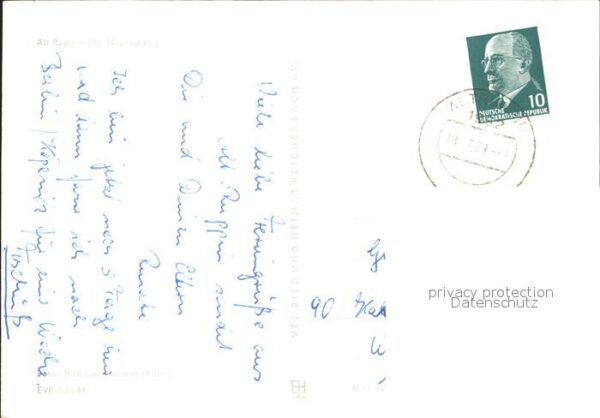 Alt Ruppin Kr. Neuruppin
Viele liebe Feriengrüße aus
Alt-Ruppin sendet
Dir und Deinen Eltern
Renate
Ich bin jetzt noch 5 Tage hier
und dann fahre ich nach
Berlin/Köpenick für eine Woche.
Tschüß
VEB BILD UND HEIMAT REICHENBACH I. V.
10
DEUTSCHE
DEMOKRATISCHE REPUBLIK
ALT
90
privacy protection
Datenschutz